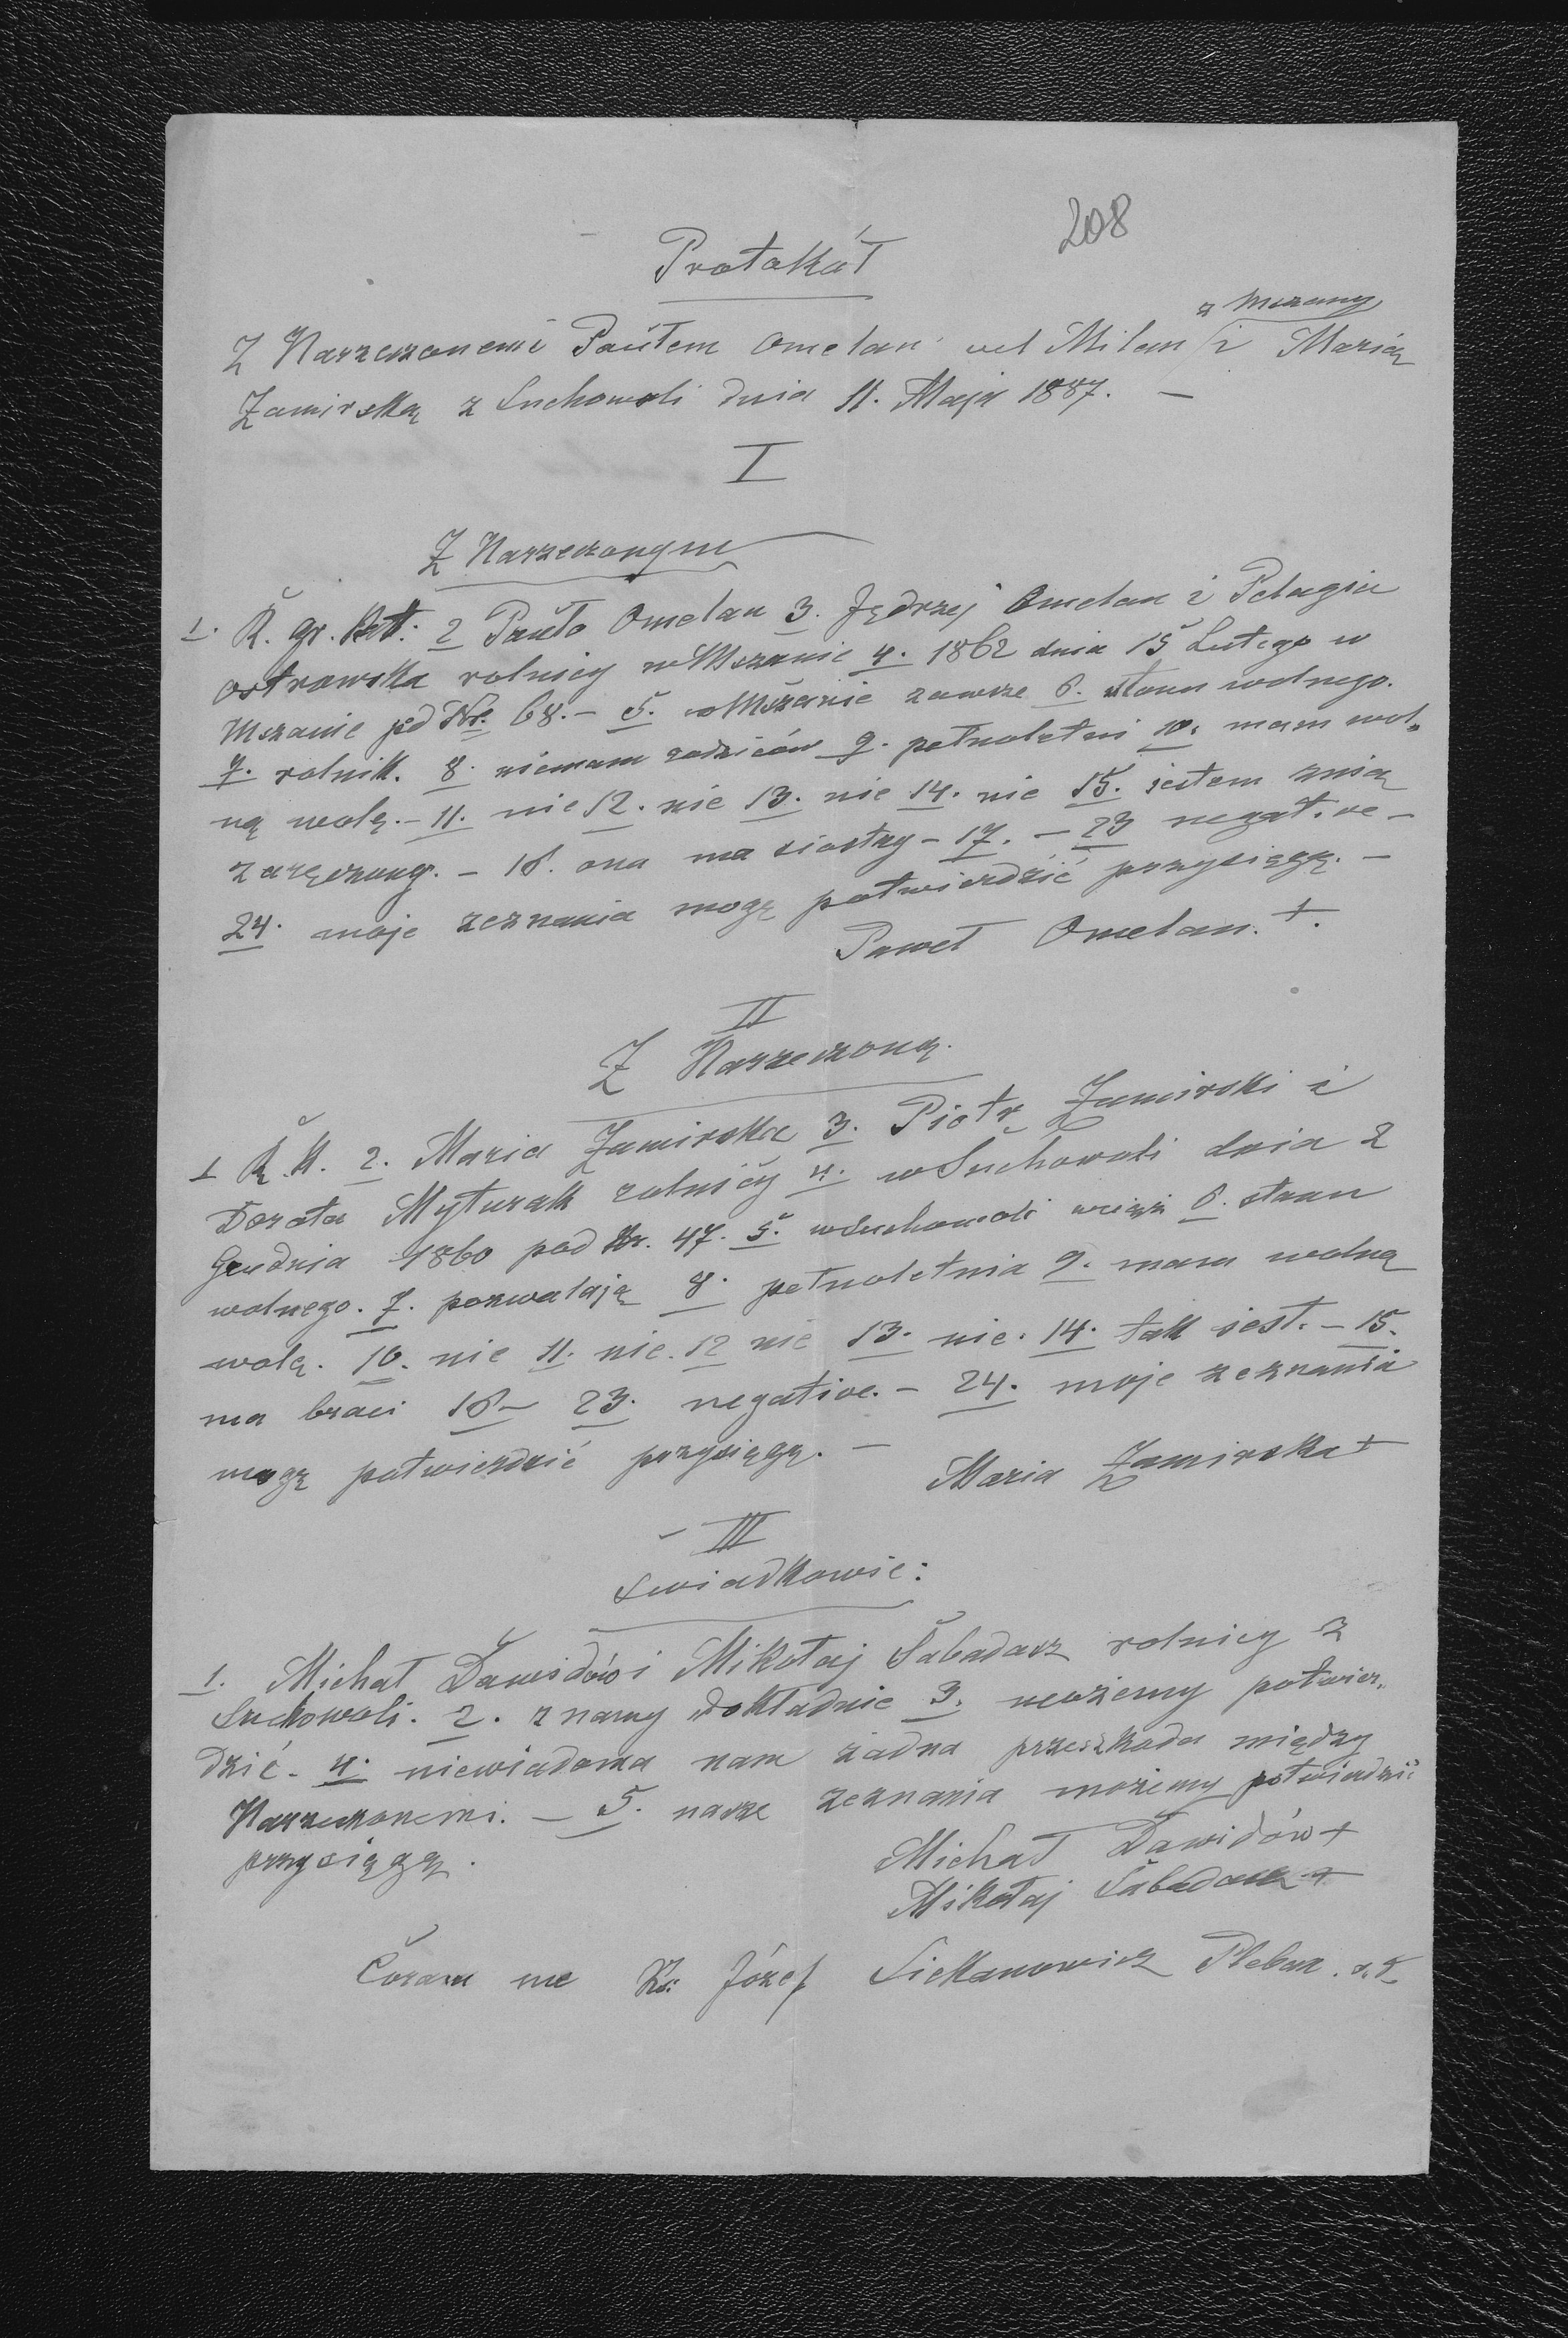 208
Protokół
z Mszany
Z Narzeczonemi Pawłem Omelan vel Milan i Marią
Zamirską z Suchowoli dnia 11. Maja 1887. —
I
Z Narzeczonym
1. R. gr. kat. 2 Pawło Omelan 3. Jędrzej Omelan i Pelagia
Ostrowska rolnicy w Mszanie 4. 1862 dnia 15 Lutego w
Mszanie pod Nr. 68. – 5. w Mszanie zawsze 6. stanu wolnego.
7. rolnik. 8. niemam rodziców 9. pełnoletni 10. mam wol„
ną wolę. – 11. nie 12. nie 13. nie 14. nie 15. jestem z nią
zaręczony. – 16. ona ma siostry – 17. – 23 negative –
24. moje zeznania mogę potwierdzić przysięgą. –
Paweł Omelan. +.
II
Z Narzeczoną.
1 R. K. 2. Maria Zamirska 3. Piotr Zamirski i
Dorota Myturak rolnicy 4. w Suchowoli dnia 2
Grudnia 1860 pod Nr. 47. 5. w Suchowoli 6. stanu
wolnego. 7. pozwalają 8. pełnoletnia 9. mam wolną
wolę. 10. nie 11. nie. 12 nie 13. nie. 14. tak jest. – 15.
ma braci 16 – 23. negative. – 24. moje zeznania
mogę potwierdzić przysięgą. —
Maria Zamirska +
III
Świadkowie:
1. Michał Dawidów i Mikołaj Sabadasz rolnicy z
Suchowoli. 2. znamy dokładnie 3. możemy potwier„
dzić. 4. niewiadoma nam żadna przeszkoda między
Narzeczonemi. – 5. nasze zeznania możemy potwierdzić
przysięgą.
Michał Dawidów +
Mikołaj Sabadasz +
Coram me Ks. Józef Siekanowicz Pleban.